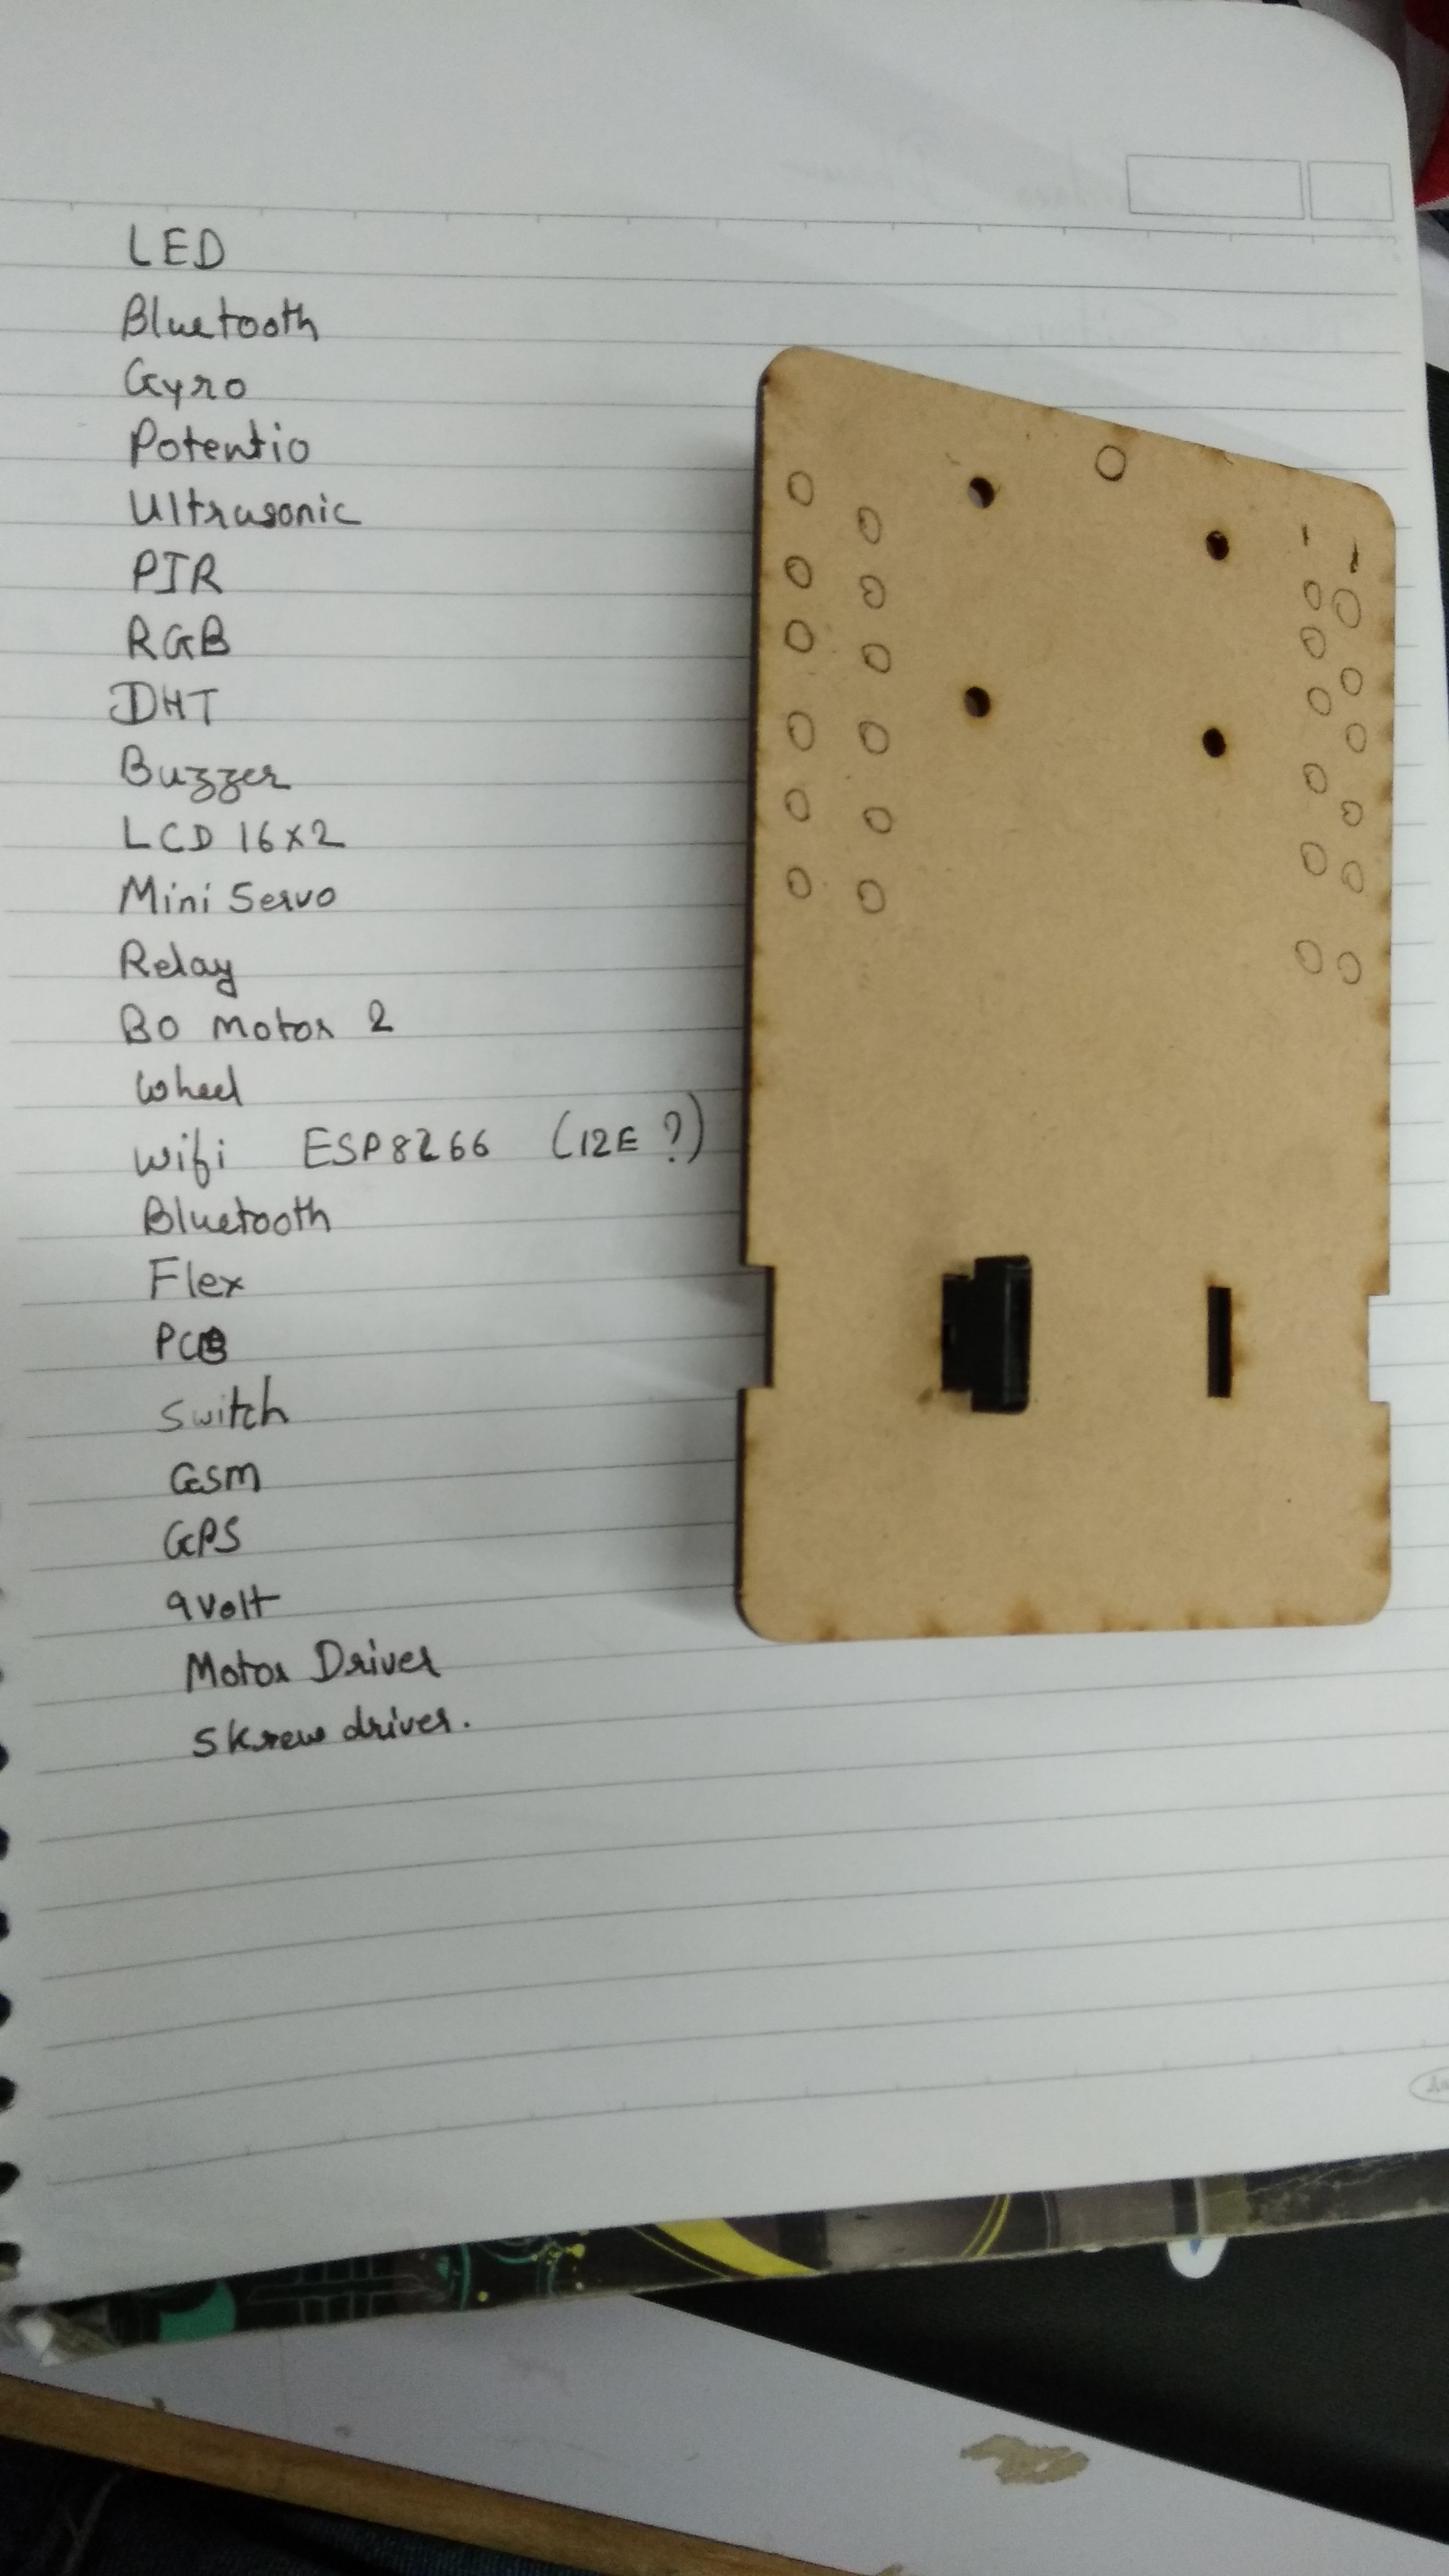 LED
Bluetooth
Gyro
Potentio
Ultrasonic
PIR
RGB
DHT
Buzzer
LCD 16x2
Mini Servo
Relay
BO Motor 2
Wheel
Wifi ESP8266 (12E ?)
Bluetooth
Flex
PCB
Switch
GSM
GPS
9volt
Motor Driver
Skrew driver.